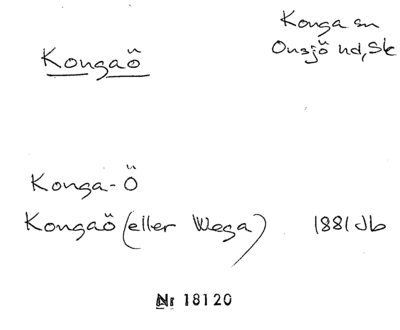 Kongaö
Konga sn
Onsjö hd, Sk
Konga-Ö
Kongaö (eller Wega) 1881 Jb
Nr 18120